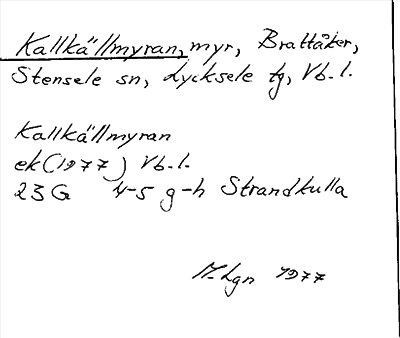 Kallkällmyran, myr, Brattåker,
Stensele sn, Lycksele tg, Vb. l.
Kallkällmyran
ek (1977) Vb. l.
23 G 4-5 g-h Strandkulla
1977